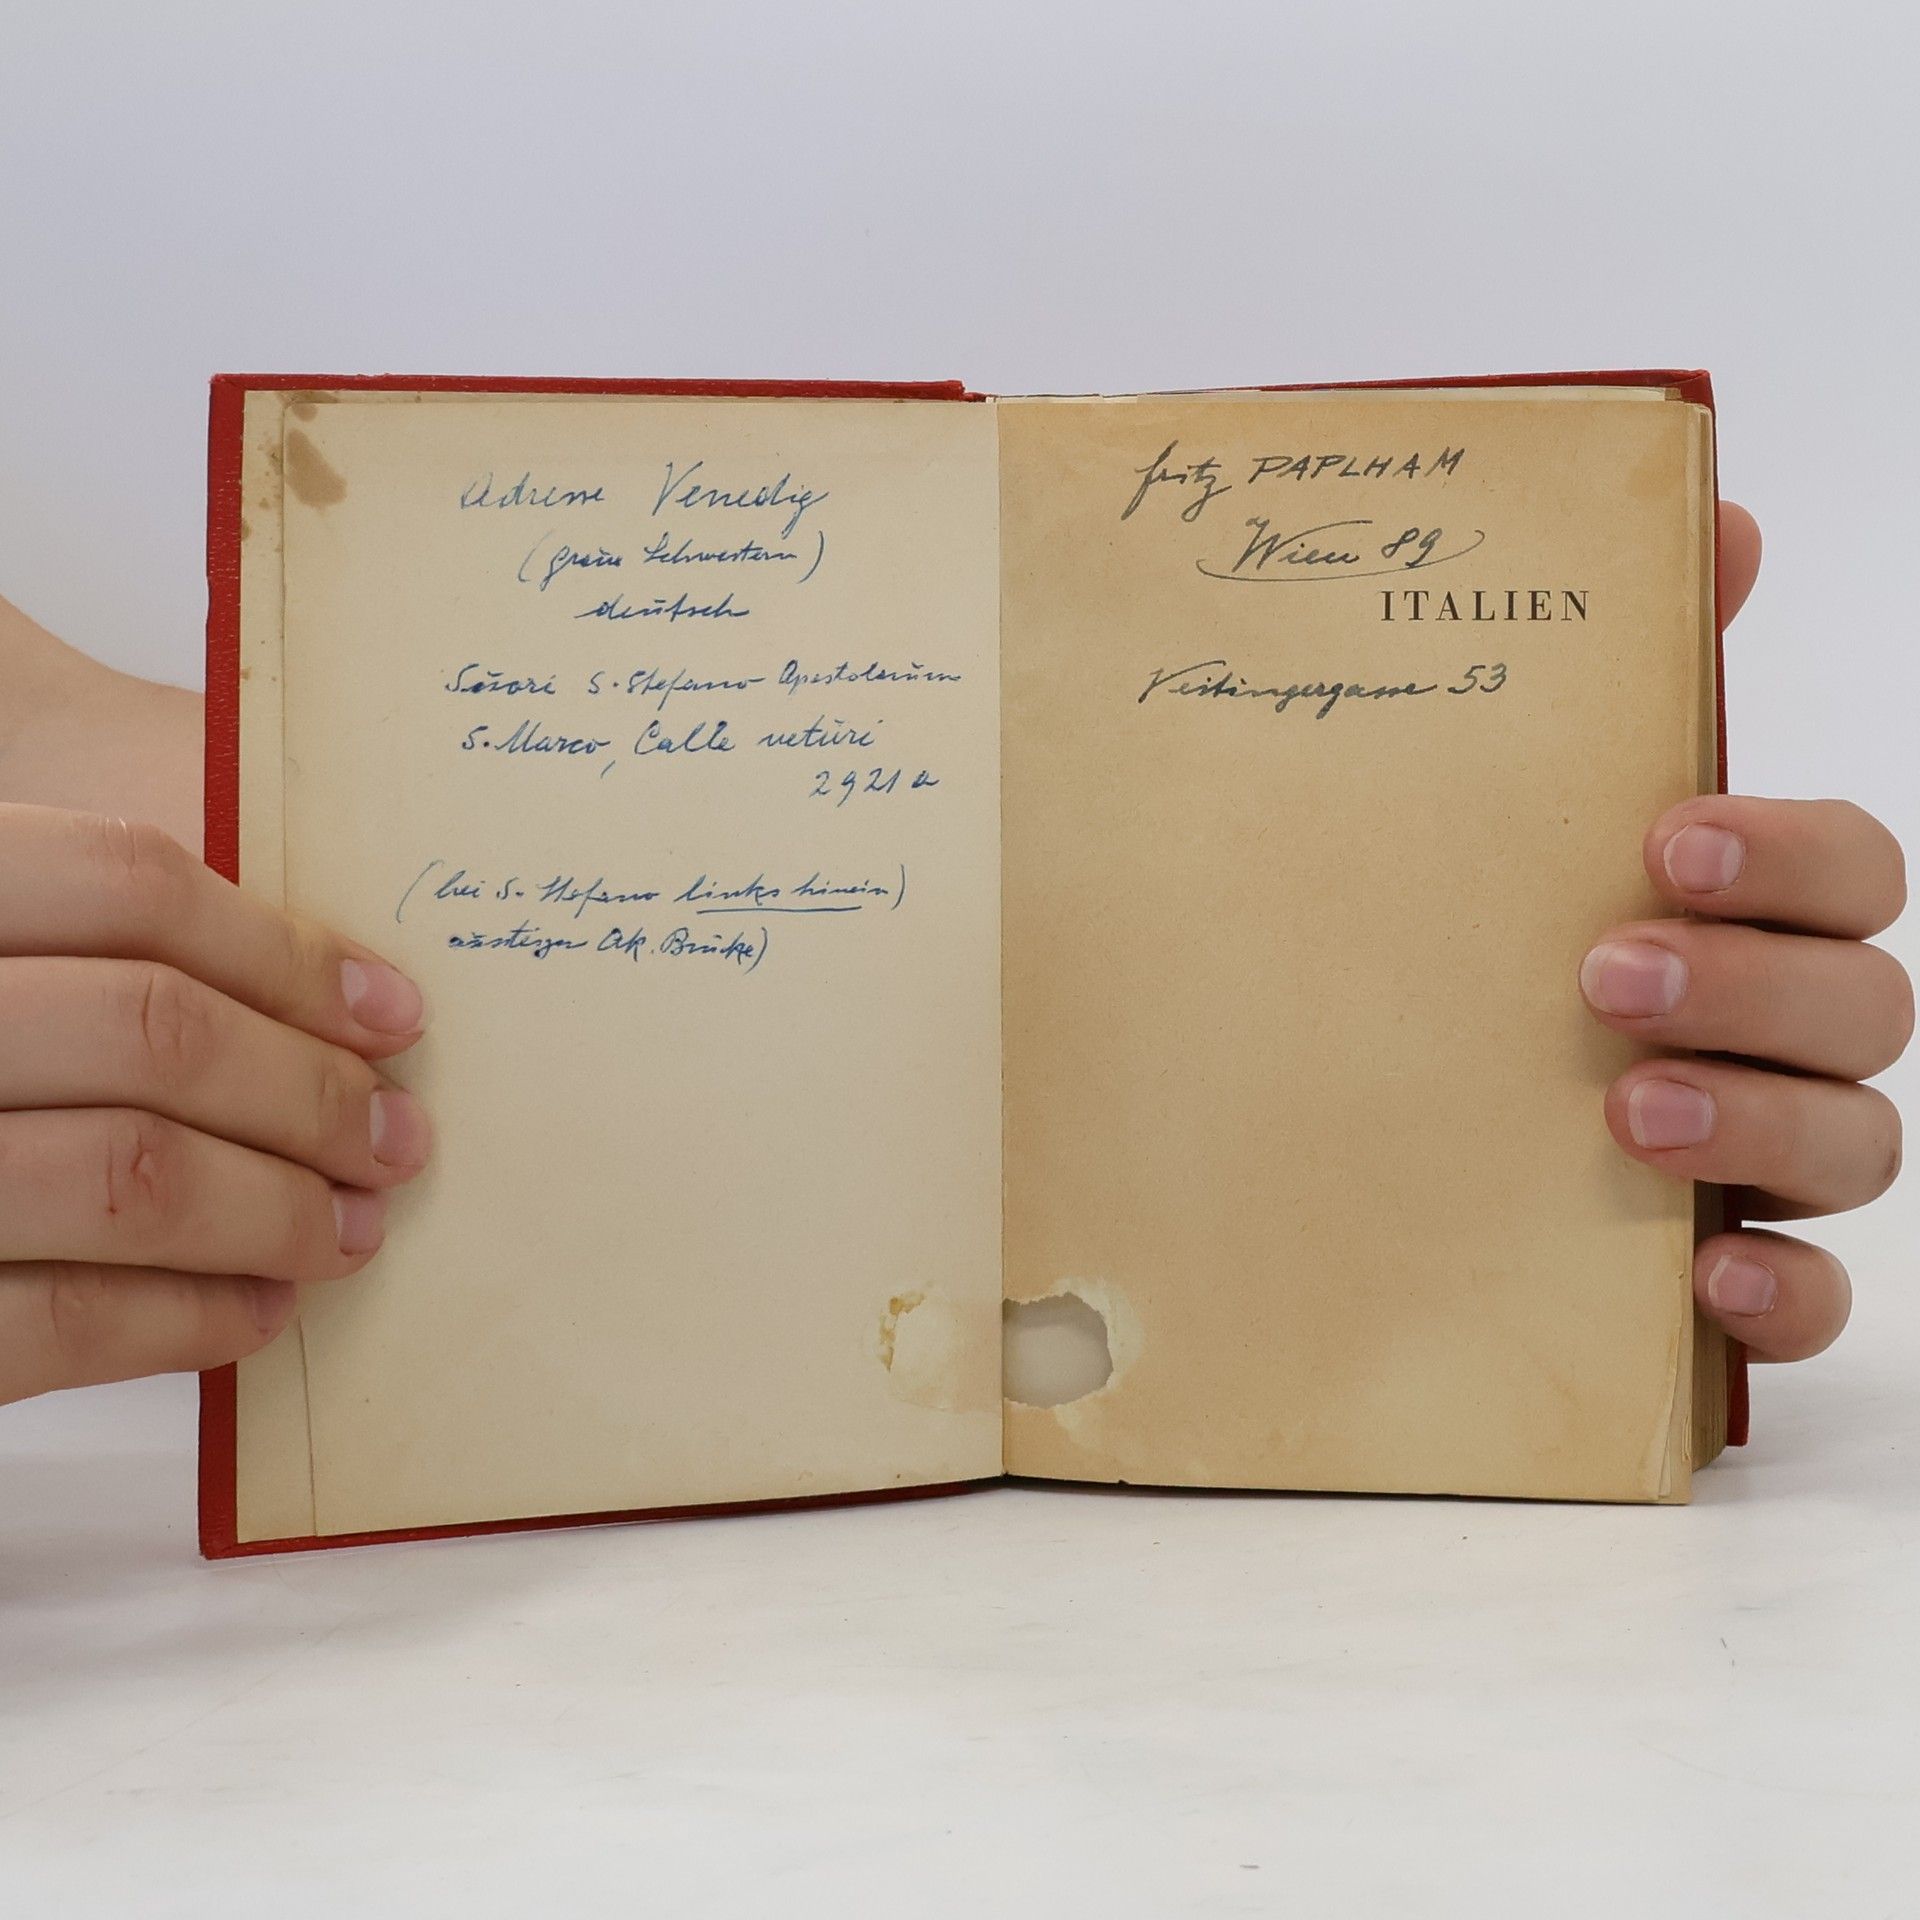 Adresse Venedig
(graue Schwestern)
deutsch
Suori S. Stefano Apostolorum
S. Marco, Calle veturi
2921 a
(bei S. Stefano links hinein)
Ak. Brücke)
fritz PAPLHAM
Wien 89
ITALIEN
Veitingergasse 53